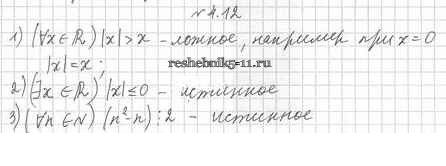 № 4.12
1) (∀x ∈ ℝ) |x| > x - ложное, например при x = 0
|x| = x;
reshebnik5-11.ru
2) (∃x ∈ ℝ) |x| ≤ 0 - истинное
3) (∀n ∈ N) (n²-n) ⋮ 2 - истинное